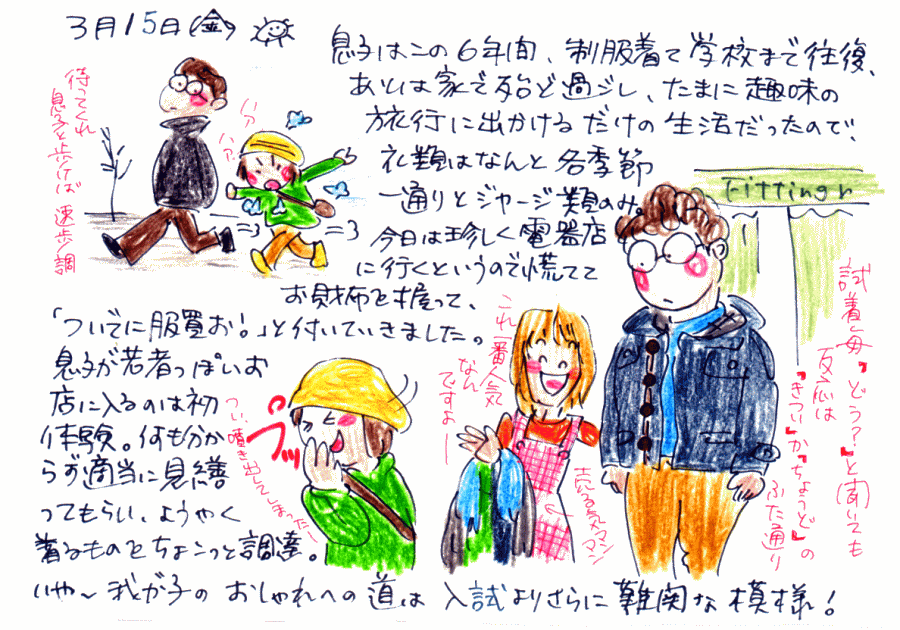 3月15日(金)
息子はこの6年間、制服着て学校まで往復、
あとは家で殆ど過ごし、たまに趣味の
旅行に出かけるだけの生活だったので、
衣類はなんと各季節
一通りとジャージ類のみ。
今日は珍しく電器店
に行くというので慌てて
お財布を握って、
「ついでに服買お!」と付いていきました。
息子が若者っぽいお
店に入るのは初
体験。何も分か
らず適当に見繕
ってもらい、ようやく
着るものをちょこっと調達。
いや〜我が子のおしゃれへの道は入試よりさらに難関な模様!
待ってくれ
息子と歩けば速歩調
ハァ
ハァ
Fitting r
これ一番人気
なん
ですよー
売る気マン
マン
プッ
つい噴き出してしまったー
試着毎『どう?』と聞いても
反応は
『きつい』か『ちょうど』の
ふた通り